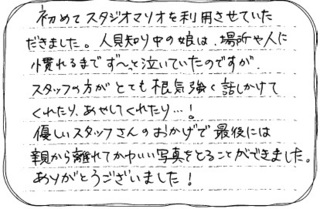 初めてスタジオマリオを利用させていた
だきました。人見知り中の娘は、場所や人に
慣れるまでず〜っと泣いていたのですが
スタッフの方がとても根気強く話しかけて
くれたり、あやしてくれたり…!
優しいスタッフさんのおかげで最後には
親から離れてかわいい写真をとることができました。
ありがとうございました!